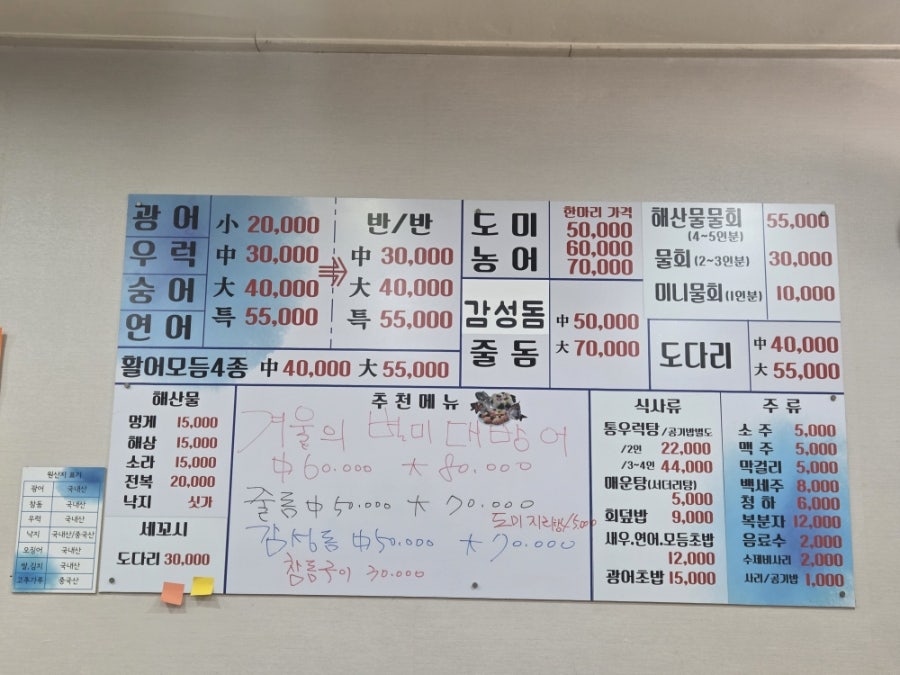 광어
우럭
숭어
연어
小 20,000
中 30,000
大 40,000
특 55,000
반/반
中 30,000
大 40,000
특 55,000
활어모듬4종 中 40,000 大 55,000
도미
농어
한마리 가격
50,000
60,000
70,000
감성돔
줄돔
中 50,000
大 70,000
해산물물회 55,000
(4~5인분)
물회 (2~3인분) 30,000
미니물회 (1인분) 10,000
도다리
中 40,000
大 55,000
해산물
멍게 15,000
해삼 15,000
소라 15,000
전복 20,000
낙지 싯가
세꼬시
도다리 30,000
추천메뉴
겨울의 별미 대방어
中 60.000 大 80.000
줄돔 中 50.000 大 70.000
도미지리탕/5000
감성돔 中 50.000 大 70.000
참돔구이 30.000
식사류
통우럭탕/공기밥별도
/2인 22,000
/3~4인 44,000
매운탕(서더리탕)
5,000
회덮밥 9,000
새우.연어.모듬초밥
12,000
광어초밥 15,000
주류
소주 5,000
맥주 5,000
막걸리 5,000
백세주 8,000
청하 6,000
복분자 12,000
음료수 2,000
수제비사리 2,000
사리/공기밥 1,000
원산지 표기
광어 국내산
참돔 국내산
우럭 국내산
낙지 국내산/중국산
오징어 국내산
쌀,김치 국내산
고추가루 중국산